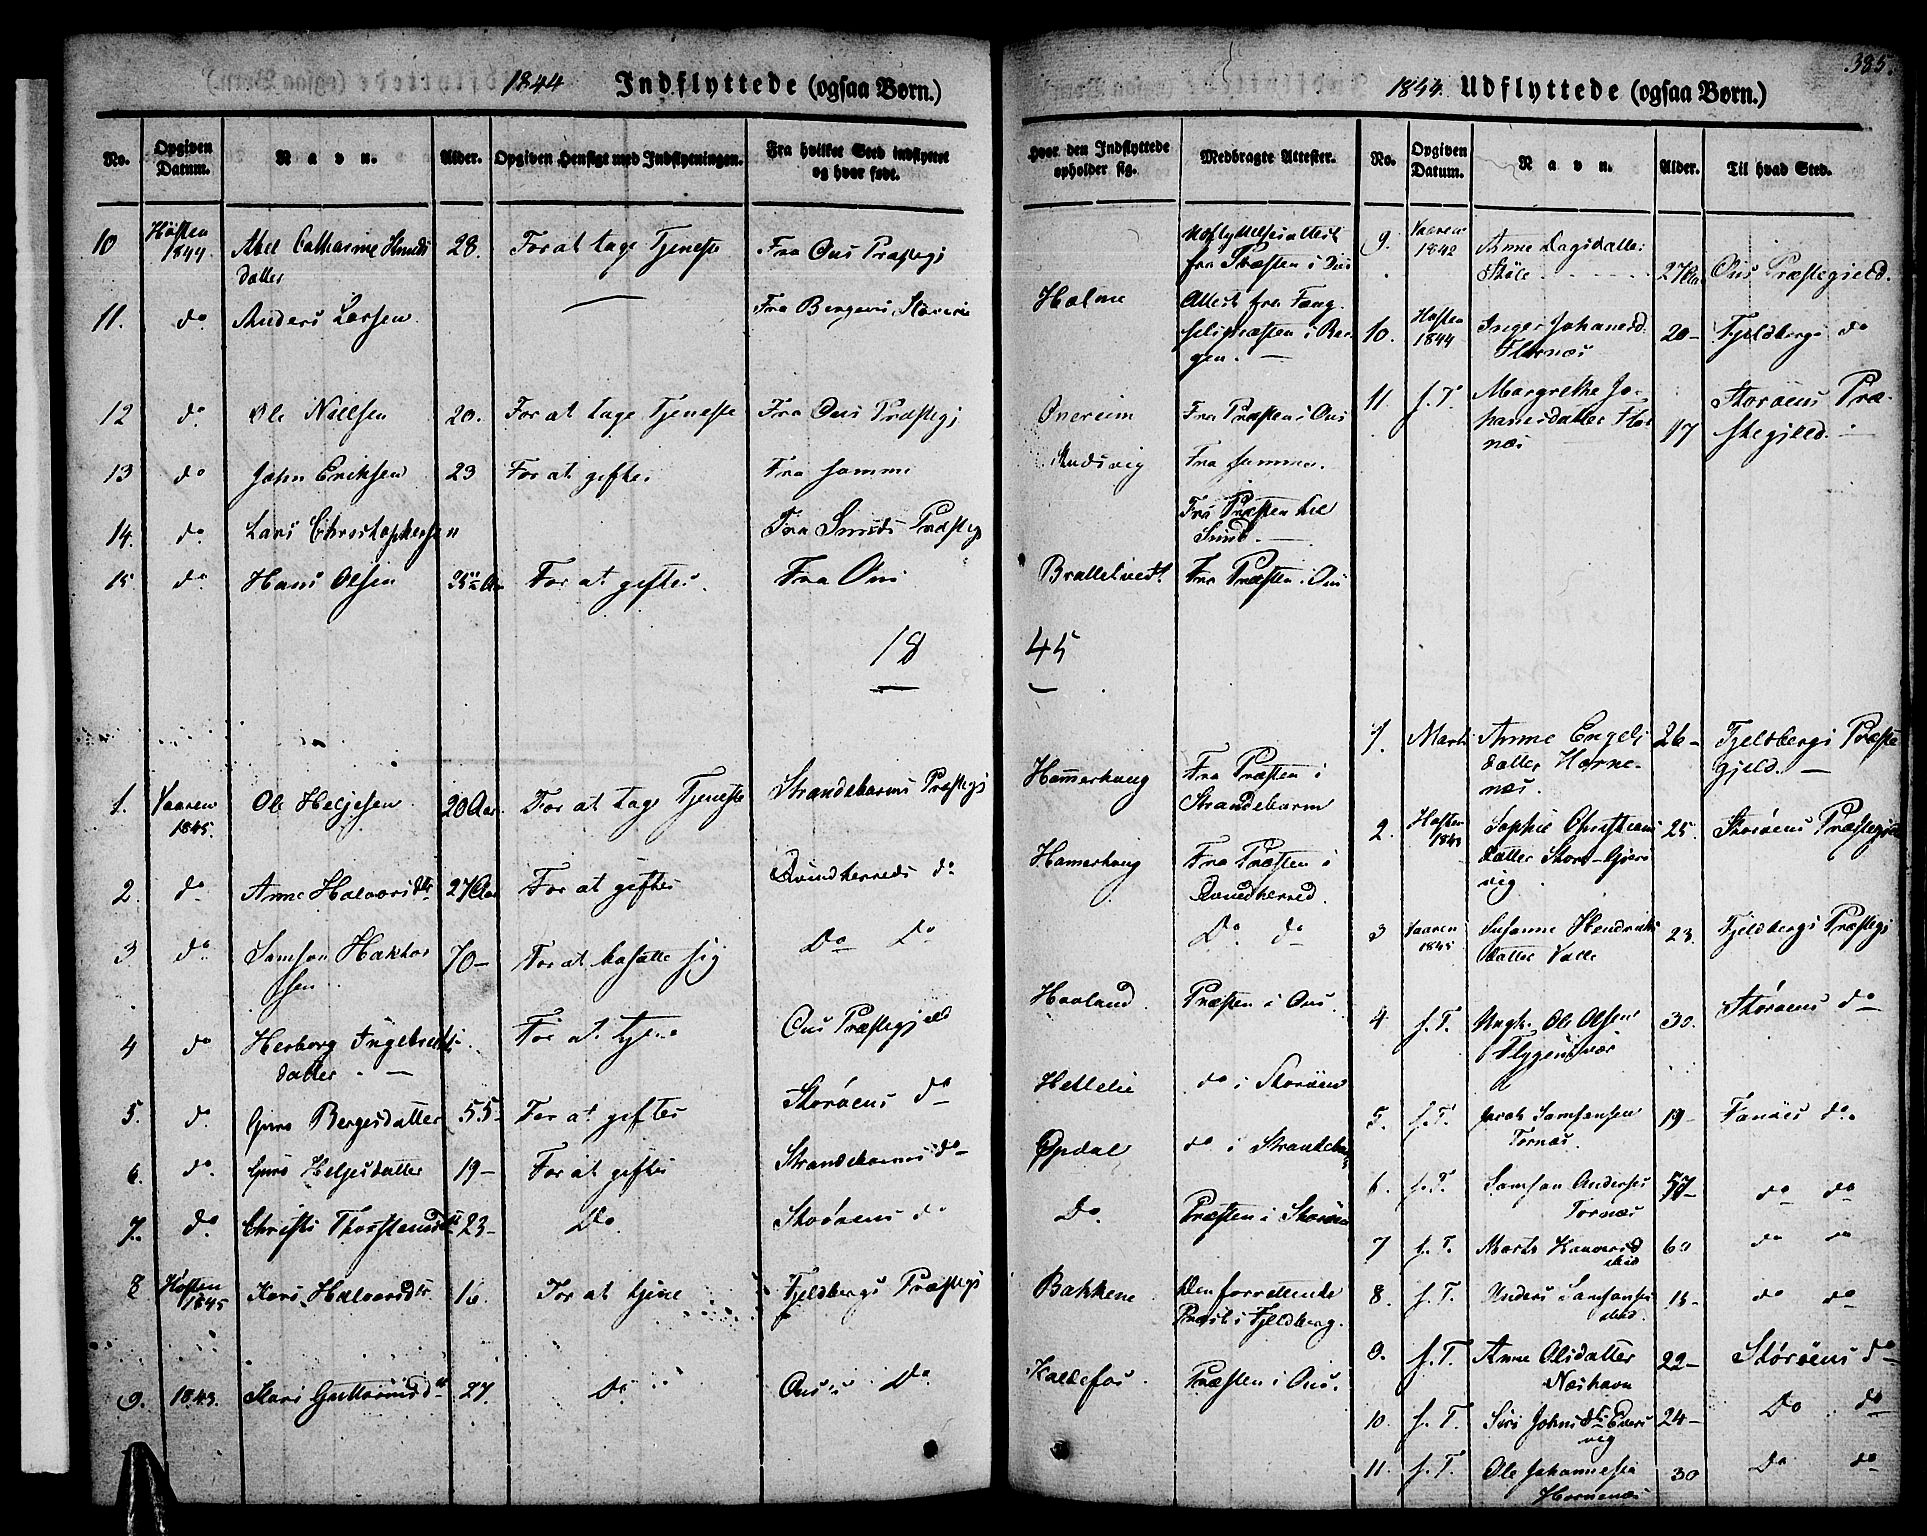 385.
1844 Indflyttede (ogsaa Børn.)
No.
Opgiven Datum.
Navn.
Alder.
Opgiven Hensigt med Indflytningen.
Fra hvilket Sted indflyttet og hvor født.
Hvor den Indflyttede opholder sig.
Medbragte Attester.
10 Høsten 1844 Abel Catharine Knuds 28. For at tage Tjeneste Fra Ous Præstegj Udflyttelsesattest
datter fra Præsten i Ous
11. do Anders Larsen — Fra Bergens Slaverie Halme Attest fra Fang
selspræsten i Ber
gen. —
12 do Ole Nilsen 20. For at tage Tjeneste Fra Ous Præstegj Fra Præsten i Ous
13 do John Eriksen 23 For at giftes Fra samme Fra samme.
14. do Lars Christophersen Fra Sunds Præstegj Fra Præsten til
Sund. —
15 do Hans Olsen 25 Aar For at giftes. Fra Ous Brattetvedt Fra Præsten i Ous
18 45
1. Vaaren 1845. Ole Heljesen 20 Aar. For at tage Tjeneste Strandebarms Præstegj Hammerhaug Fra Præsten i
Strandebarm
2. do Anne Halvorsdtr 27 Aar For at giftes Qvindherreds do Hamerhaug Fra Præsten i
Qvindherred.
3 do Samson Haktor 70— For at bosætte sig Do Do Do do
sen.
4 do Herborg Ingebrigts For at tjene Ous Præstegjeld Haaland. Præsten i Ous.
datter. —
5. do Guro Bergesdatter 55— For at giftes Storøens do Hettelie do i Storøen
6. do Guro Heljesdatter 19— For at giftes Strandebarms do Opdal do i Strandebarm
7. do Christi Thorstensdtr 23— Do Storøens do Do. Præsten i Storøen
8 Høsten 1845 Kari Halvorsdtr 16. For at tjene Fjeldbergs Præstegj Bakkene Den forrettende
Præst i Fjeldberg.
9. 1843. Kari Guttormsdtr 27. Do Ous Do Kaldefos. Præsten i Ous.
1844. Udflyttede (ogsaa Børn.)
No.
Opgiven Datum.
Navn.
Alder.
Til hvad Sted.
9. Vaaren 1842 Anne Larsdatter
Støle 27 Aar Ous Præstegield.
10. Høsten 1844 Inger Johansd. 20— Fjeldbergs do
11. f. T. Margrethe Jo-
hannesdatter Hor 17 Storøens Præ-
næs stegjeld.
1. Marts Anne Engels 26— Fjeldbergs Præste
datter Horne- gjeld. —
næs.
2. Høsten Sophie Christians 25. Storøens Præstegjeld
datter Store-Gjers
vig
3 Vaaren 1845 Susanne Hendriks 23. Fjeldbergs Præstegj
datter Valle
4. f. T. Ungk. Ole Olsen 30. Storøens do
5. f. T. Jacob Samsonsen 19— Fanøes do.
Tornæs.
6. f. T. Samson Andersen 57— do do
Tornæs
7 f. T. 60 do do
8. f. T. Anders Samsonsen 15— do do
9. f. T. Anne Olsdatter 22— Storøens do
Næshavn
10. f. T. Siri Johnsdtr 24— Do do
vig
11. f. T. Ole Johannesen 30 Do do
Hornenæs